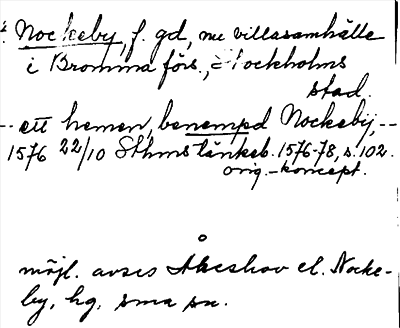 Nockeby, f. gd, nu villasamhälle
i Bromma förs., Stockholms
stad.
-- ett hemen, benempd Nockebÿ, --
1576 22/10 Sthms tänkeb. 1576-78, s. 102.
orig.-koncept.
möjl. avses Åkeshov el. Nocke-
by, hg, sma sn.